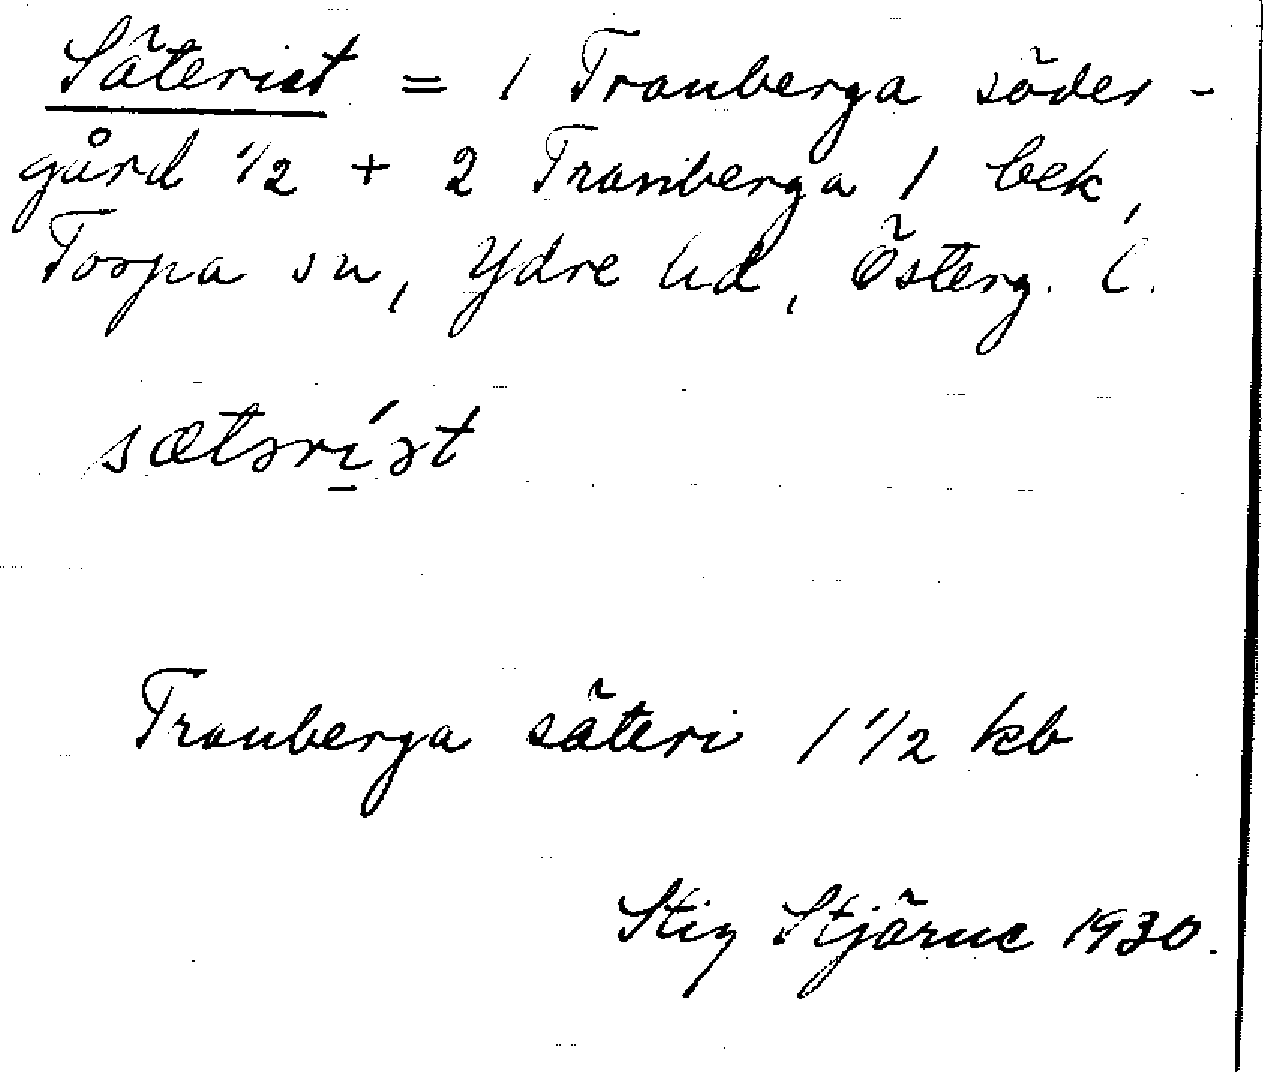 Säteriet = 1 Tranberga söder-
gård 1/2 + 2 Tranberga 1 bek,
Torpa sn, Ydre hd, Österg. l.
sætərı́ət
Tranberga säteri 1 1/2 kb
Stig Stjärne 1930.